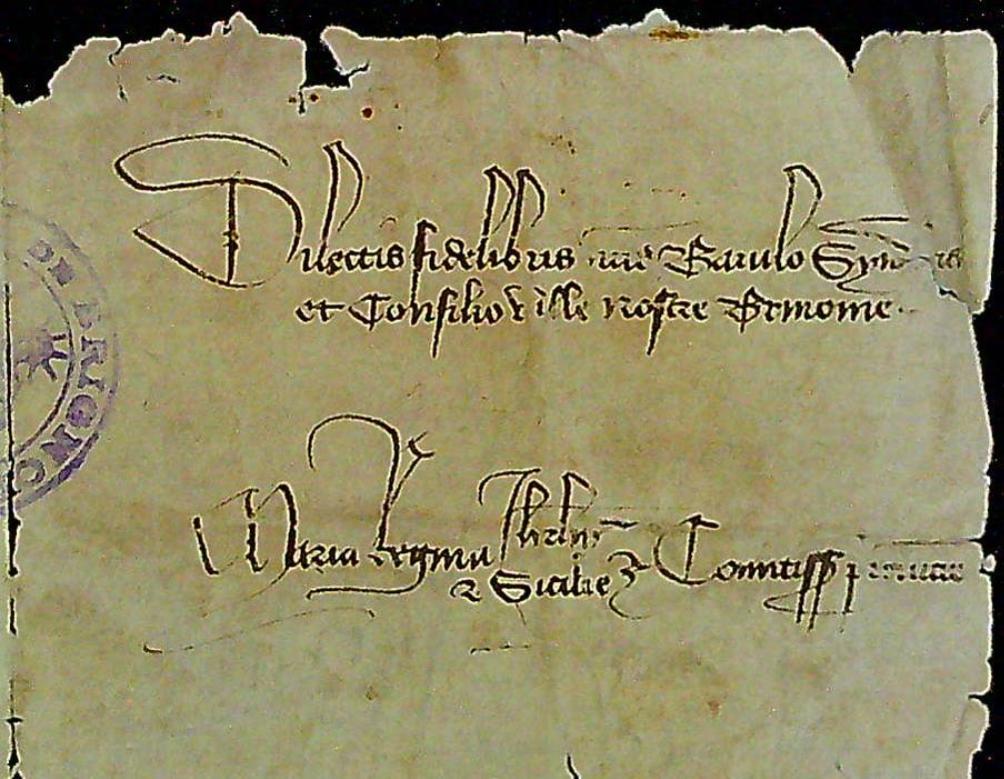 Dilectis fidelibus nr̄is Baiulo Syndicis
et Consilio ville nostre Brinonie
Maria Regina Jhrlm̄
& Sicilie & Comitissa
DE BRIGNO